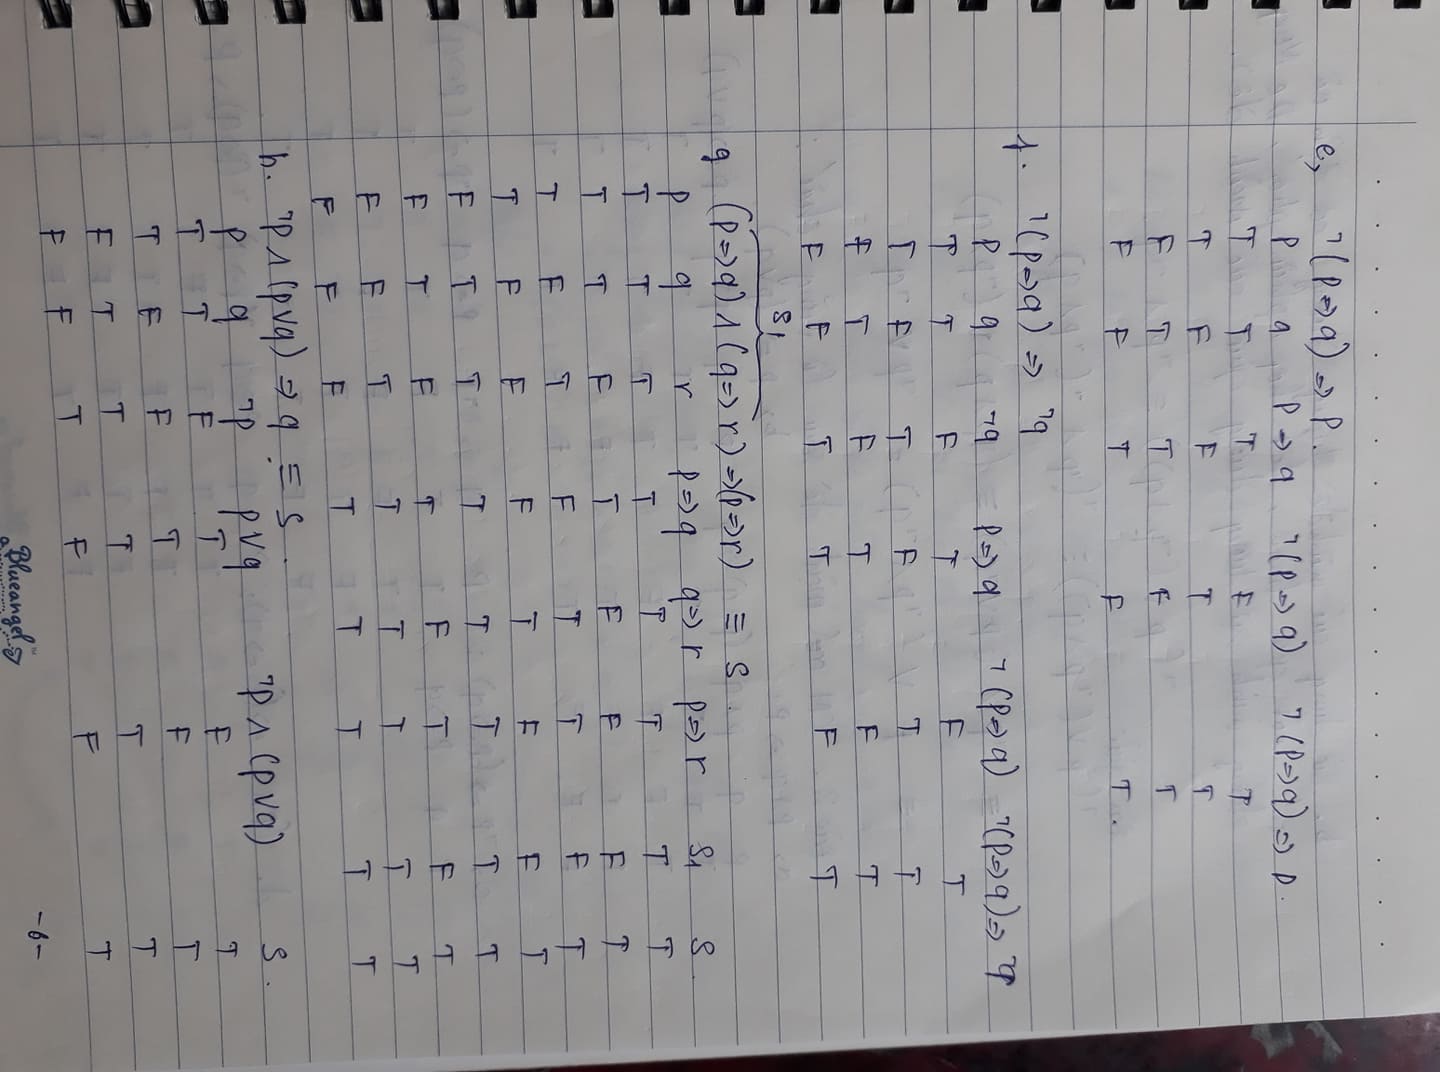 e, ¬(p⇒q) ⇒ p.
p q p⇒q ¬(p⇒q) ¬(p⇒q) ⇒ p
T T T F T
T F F T T
F T T F T
F F T F T.
f. ¬(p⇒q) ⇒ ¬q
p q ¬q p⇒q ¬(p⇒q) ¬(p⇒q)⇒ ¬q
T T F T F T
T F T F T T
F T F T F T
F F T T F T
S1
g (p⇒q)∧(q⇒r)⇒(p⇒r) ≡ S.
p q r p⇒q q⇒r p⇒r S1 S
T T T T T T T T
T T F T F F F T
T F T F T T F T
T F F F T F F T
F T T T T T T T
F T F T F T F T
F F T T T T T T
F F F T T T T T
h. ¬p∧(p∨q)⇒q ≡ S.
p q ¬p p∨q ¬p∧(p∨q) S.
T T F T F T
T F F T F T
F T T T T T
F F T F F T
Blueangel
-6-